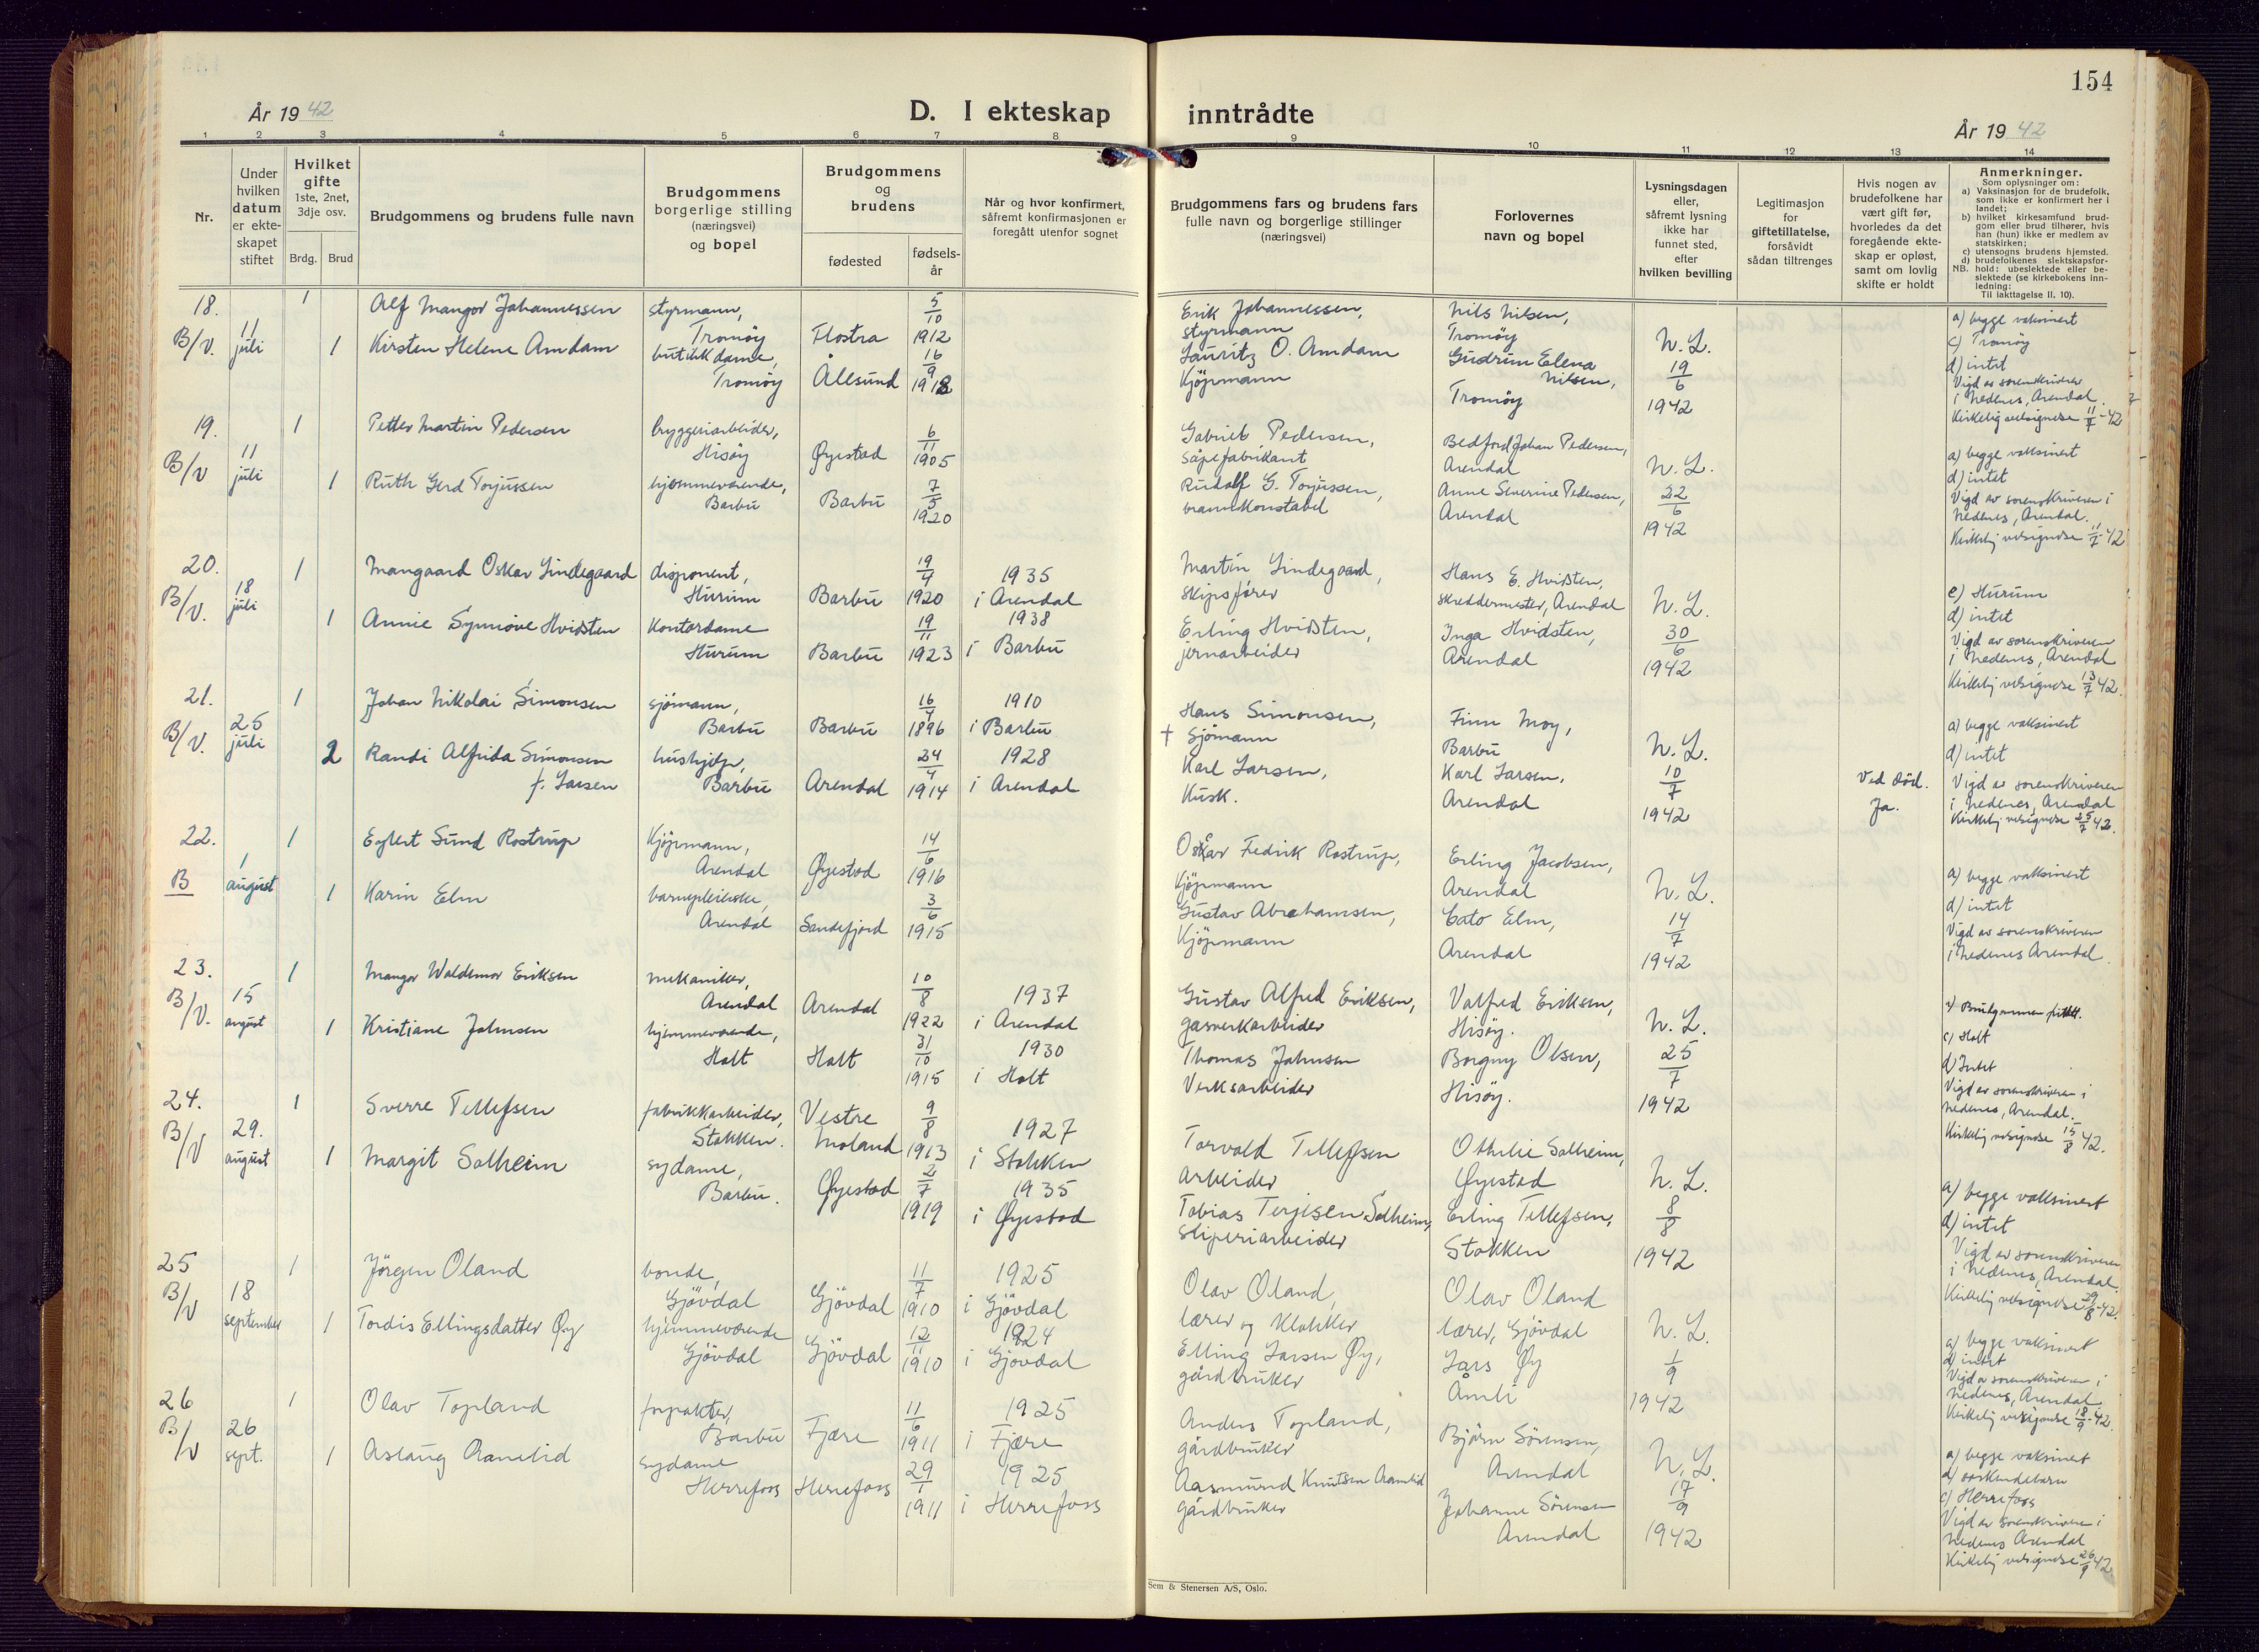 154
År 1942
D. I ekteskap inntrådte
År 1942
1 2 3 4 5 6 7 8 9 10 11 12 13 14
Nr.
Under
hvilken
datum
er ekte-
skapet
stiftet
Hvilket
gifte
1ste, 2net,
3dje osv.
Brdg. Brud
Brudgommens og brudens fulle navn
Brudgommens
borgerlige stilling
(næringsvei)
og bopel
Brudgommens
og
brudens
fødested
fødsels-
år
Når og hvor konfirmert,
såfremt konfirmasjonen er
foregått utenfor sognet
Brudgommens fars og brudens fars
fulle navn og borgerlige stillinger
(næringsvei)
Forlovernes
navn og bopel
Lysningsdagen
eller,
såfremt lysning
ikke har
funnet sted,
efter
hvilken bevilling
Legitimasjon
for
giftetillatelse,
forsåvidt
sådan tiltrenges
Hvis nogen av
brudefolkene har
vært gift før,
hvorledes da det
foregående ekte-
skap er opløst,
samt om lovlig
skifte er holdt
Anmerkninger.
Som oplysninger om:
a) Vaksinasjon for de brudefolk,
som ikke er konfirmert her i
landet;
b) hvilket kirkesamfund brud-
gom eller brud tilhører, hvis
han (hun) ikke er medlem av
statskirken;
c) utensogns brudens hjemsted.
d) brudefolkenes slektskapsfor-
NB. hold: ubeslektede eller be-
slektede (se kirkebokens inn-
ledning:
Til iakttagelse II. 10).
18. B/V. 11 juli
1 Alf Mangor Johannessen styrmann, Tromøy Flostra 5/10 1912
1 Kirsten Helene Amdam butikkdame, Tromøy Ålesund 16/9 1918
Erik Johannessen, styrmann
Lauritz O. Amdam Kjøpmann
Nils Nilsen, Tromøy
Gudrun Elena Nilsen, Tromøy
N.L. 19/6 1942
a) begge vaksinert
c) Tromøy
d) intet
Vigd av sorenskriver
i Nedenes, Arendal.
Kirkelig velsignelse 11/7-42
19. B/V 11 juli
1 Petter Martin Pedersen bryggeriarbeider, Hisøy Øyestad 6/11 1905
1 Ruth Gerd Torjussen hjemmeværende, Barbu Barbu 7/5 1920
Gabriel Pedersen, såpefabrikant
Rudolf G. Torjussen, brannkonstabel
Bedford Johan Pedersen, Arendal
Anne Severine Pedersen, Arendal
N.L. 22/6 1942
a) begge vaksinert
d) intet
Vigd av sorenskriveren i
Nedenes, Arendal.
Kirkelig velsignelse 11/7-42
20. B/V. 18 juli
1 Mangaard Oskar Lindegaard disponent, Hurum Barbu 19/4 1920 1935 i Arendal
1 Annie Synnøve Hvidsten Kontordame Hurum Barbu 19/11 1923 1938 i Barbu
Martin Lindegaard, skipsfører
Erling Hvidsten, jernarbeider
Hans E. Hvidsten, skreddermester, Arendal
Inga Hvidsten, Arendal
N.L. 30/6 1942
c) Hurum
d) intet
Vigd av sorenskriveren
i Nedenes, Arendal
Kirkelig velsignelse 13/7 42.
21. B/V. 25 juli
1 Johan Nikolai Simonsen sjømann, Barbu Barbu 16/4 1896 1910 i Barbu
2 Randi Alfrida Simonsen f. Larsen hushjelp, Barbu Arendal 24/4 1914 1928 i Arendal
Hans Simonsen, † Sjømann
Karl Larsen, Kusk.
Finn Moy, Barbu
Karl Larsen, Arendal
N.L. 10/7 1942
Ved død.
Ja.
a) begge vaksinert
d) intet
Vigd av sorenskriveren
i Nedenes, Arendal
Kirkelig velsignelse 25/7 42.
22. B 1 august
1 Egbert Sund Rostrup Kjøpmann, Arendal Øyestad 14/6 1916
1 Karin Elm barnepleierske, Arendal Sandefjord 3/6 1915
Oskar Fedrik Rostrup, Kjøpmann
Gustav Abrahamsen, Kjøpmann
Erling Jacobsen, Arendal
Cato Elm, Arendal
N.L. 14/7 1942
a) begge vaksinert
d) intet
Vigd av sorenskriveren
i Nedenes Arendal.
23. B/V. 15 august
1 Mangor Waldemar Eriksen mekaniker, Arendal Arendal 10/8 1922 1937 i Arendal
1 Kristiane Johnsen hjemmeværende, Holt Holt 31/10 1915 1930 i Holt
Gustav Alfred Eriksen, gasverkarbeider
Thomas Johnsen Verksarbeider
Valfred Eriksen, Hisøy.
Borgny Olsen, Hisøy.
N.L. 25/7 1942
a) Brudgommen
c) Holt
d) Intet
Vigd av sorenskriveren i
Nedenes, Arendal.
Kirkelig velsignelse 15/8 42.
24. B/V 29. august
1 Sverre Tellefsen fabrikkarbeider, Stokken. Vestre Moland 9/8 1913 1927 i Stokken
1 Margit Solheim sydame, Barbu. Øyestad 2/7 1919 1935 i Øyestad
Torvald Tellefsen arbeider
Tobias Terjesen Solheim, sliperiarbeider
Othilie Solheim, Øyestad
Erling Tellefsen, Stokken
N.L. 8/8 1942
a) begge vaksinert
d) intet
Vigd av sorenskriveren
i Nedenes, Arendal.
Kirkelig velsignelse 29/8-42.
25 B/V 18 september
1 Jørgen Oland bonde, Gjøvdal Gjøvdal 11/7 1910 1925 i Gjøvdal
1 Tordis Ellingsdatter Øy hjemmeværende Gjøvdal Gjøvdal 12/11 1910 1924 i Gjøvdal
Olav Oland, lærer og Klokker
Elling Larsen Øy, gårdbruker
Olav Oland lærer, Gjøvdal
Lars Øy Åmli
N.L. 1/9 1942
a) begge vaksinert
d) intet
Vigd av sorenskriveren i
Nedenes, Arendal
Kirkelig velsignelse 18/9-42.
26 B/V 26 sept.
1 Olav Topland forpakter, Barbu Fjære 11/6 1911 1925 i Fjære
1 Aslaug Aamelid sydame Herrefoss Herrefoss 29/1 1911 1925 i Herrefoss
Anders Topland, gårdbruker
Aasmund Knutsen Aamlid gårdbruker
Bjørn Sørensen, Arendal
Johanne Sørensen Arendal
N.L. 17/9 1942
a) begge vaksinert
d) søskendebarn
c) Herrefoss
Vigd av sorenskriveren i
Nedenes Arendal
Kirkelig velsignelse 26/9 42
Sem & Stenersen A/S, Oslo.